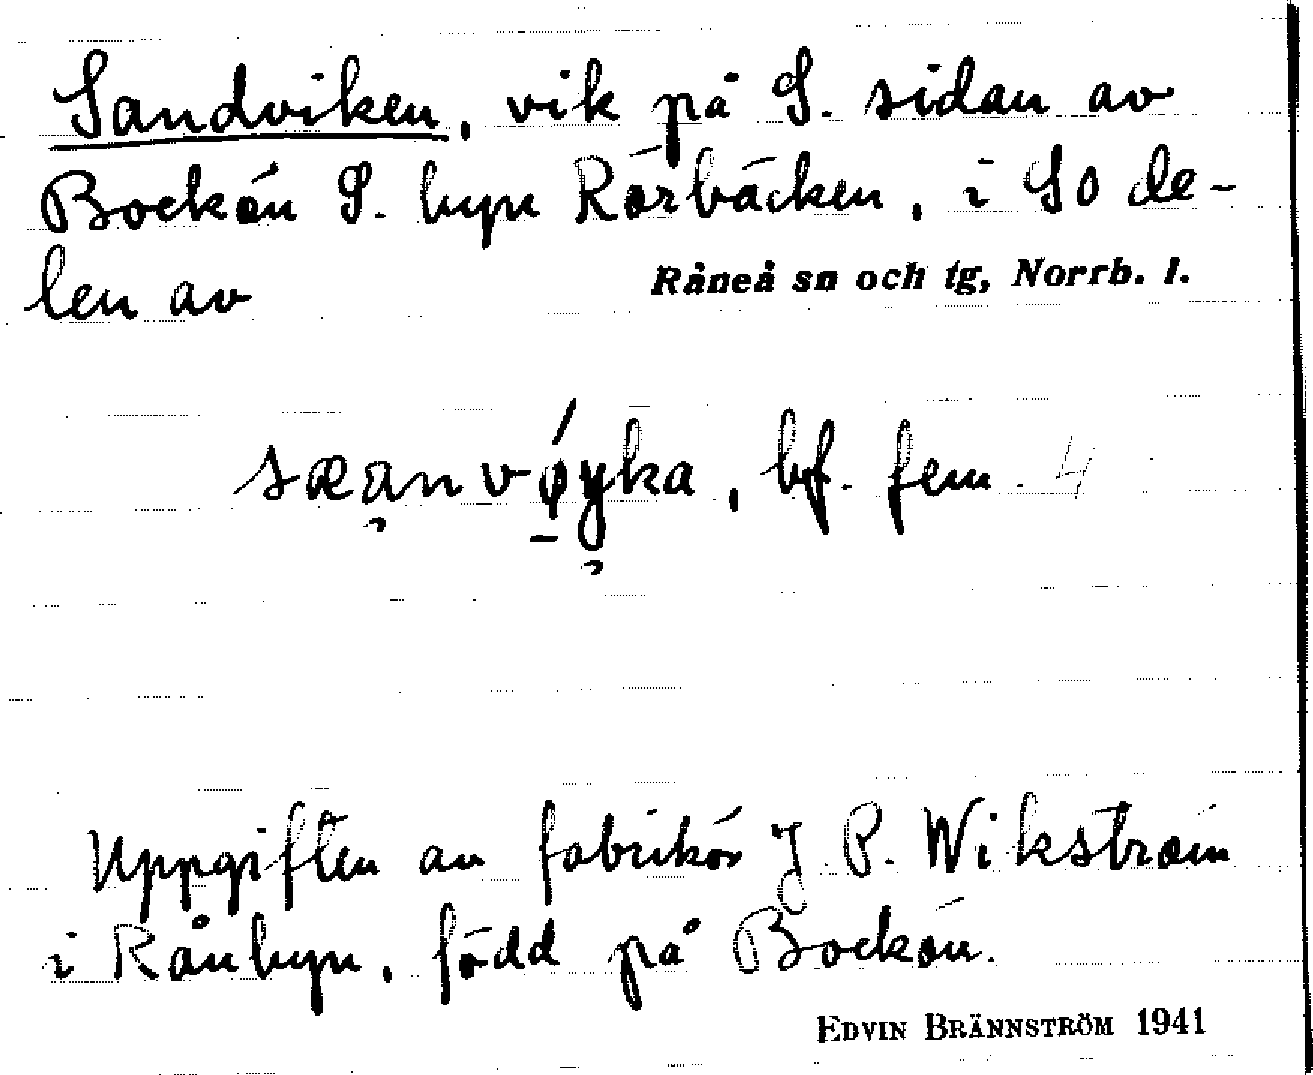 Sandviken, vik på S. sidan av
Bockön S. byn Rörbäcken, i SO de-
len av
Råneå sn och tg, Norrb. l.
sæa̦nvǿ̱y̦ka, bf. fem. 4
Uppgiften av fabrikör J. P. Wikström
i Rånbyn, född på Bockön.
EDVIN BRÄNNSTRÖM 1941